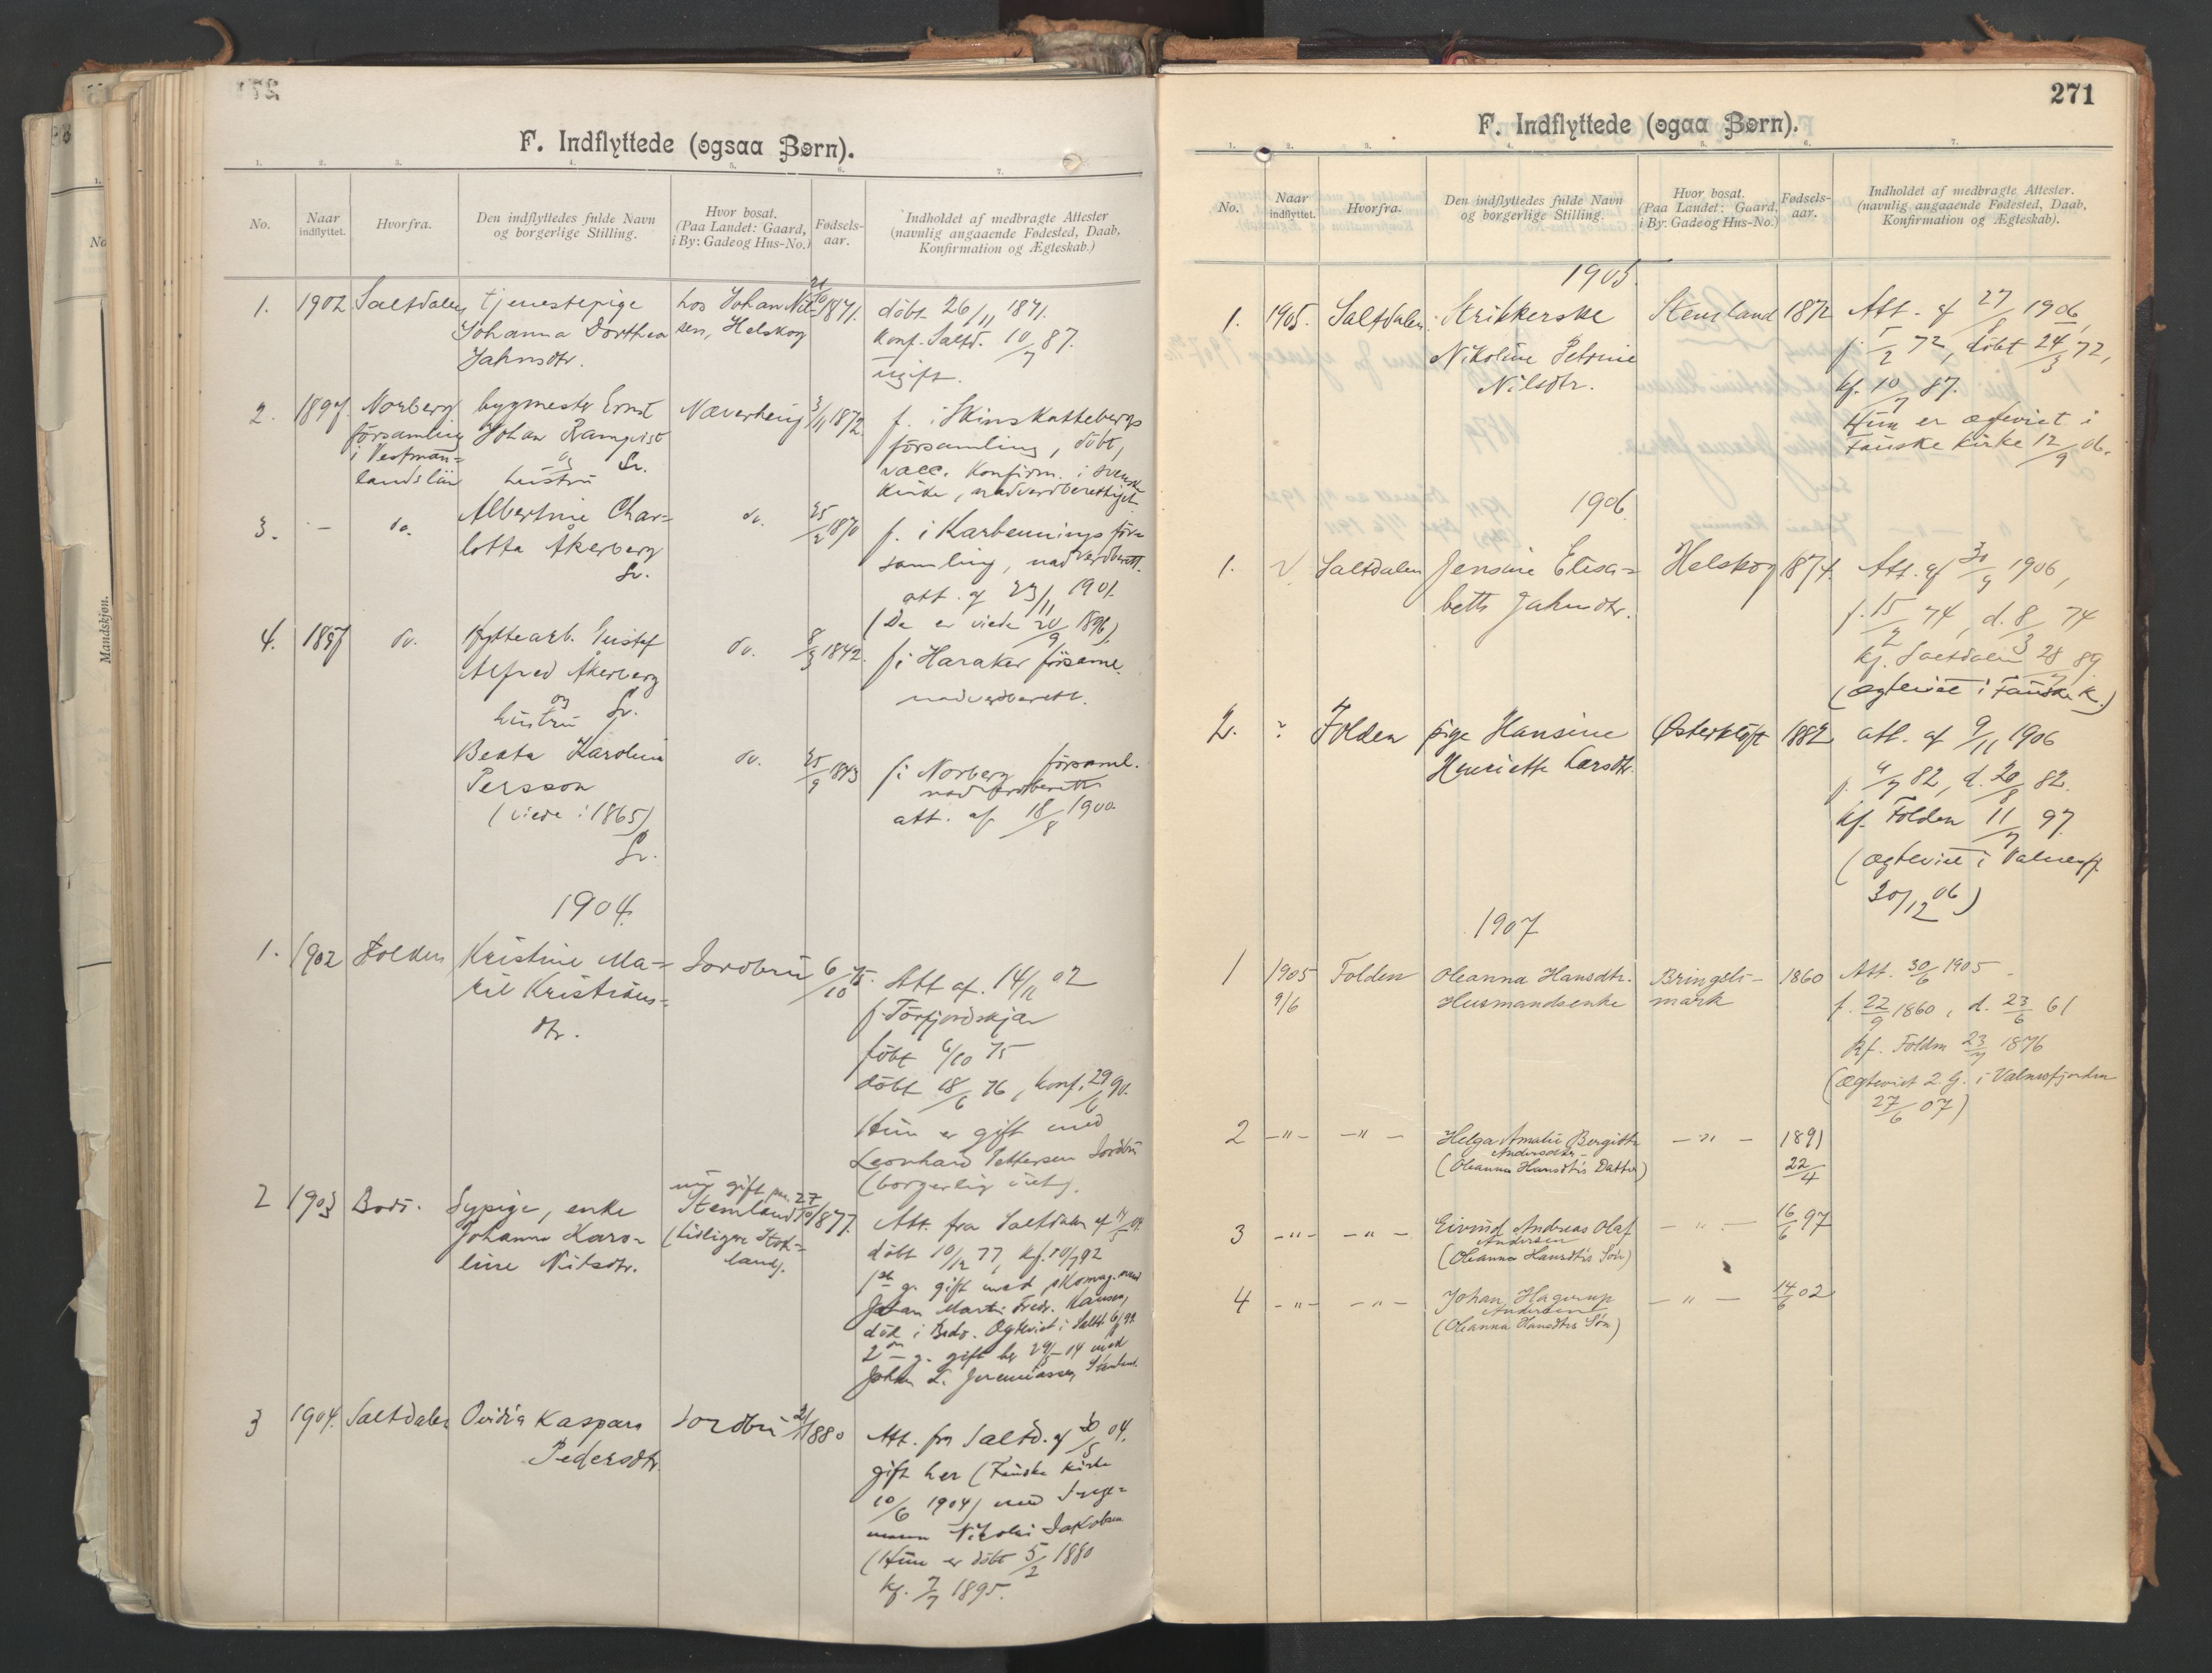 F. Indflyttede (ogsaa Børn).
1. 2. 3. 4. 5. 6. 7.
No.
Naar indflyttet.
Hvorfra.
Den indflyttedes fulde Navn
og borgerlige Stilling.
Hvor bosat.
(Paa Landet: Gaard,
i By: Gade og Hus-No.)
Fødsels-
aar.
Indholdet af medbragte Attester
(navnlig angaaende Fødested, Daab,
Konfirmation og Ægteskab.)
1. 1902 Saltdalen tjenestepige hos Johan Nil- 1871. döbt 26/11 1871.
Johanna Dorthea sen, Helskog konf. Saltd. 10/7 87.
Jahnsdtr. ugift.
2. 1897 Norberg bygmester Ernst Næverhaug 3/11 1872. f. i Skinskattebergs
församling Johan Ramqvist församling, döbt,
i Vestman= og Sv. vacc. Konfirm. i svenske
lands län hustru Kirke, nadverdberettiget
3. - do. Albertine Char= do. 25/2 1870 f. i Karbennings för=
lotta Åkerberg samling, nadverdberett.
Sv. att. af 23/11 1901.
(De er viede 20/9 1896)
4. 1897 do. Hyttearb. Gustaf do. 8/3 1842. f. i Haraker församl.
Alfred Åkerberg nadverdberett.
og Sv.
hustru
Beata Karolina do. 25/9 1843 f. i Norberg församl.
Persson nadverdberett.
(viede i 1865) att. af 18/8 1900
Sv.
1904.
1. 1902 Folden Kristine Ma= Jordbru 6/10 75. Att af. 14/11 02
rie Kristians= f. Törfjordskjær
dtr. födt 6/10 75
döbt 18/6 76, konf. 29/6 90.
Hun er gift med
Leonhard Pettersen Jordbru
(borgerlig viet).
nu gift paa 27/10
2 1903 Bodö. Sypige, enke Stemland 1877. Att. fra Saltdalen af
Johanna Karo= (tidligere Stok= döbt 10/12 77, kf. 10/7 92
line Nilsdtr. land). 1ste g. gift med
Johan Martin Fredr. Hansen,
död i Bodö. Ægteviet i Saltd.
2den g. gift her 29/5 04 med
Johan L. Jeremiassen, Stemland.
3 1904. Saltdalen Ovidia Kaspara Jordbru 1880 Att. fra Saltd. af 30/5 04.
Pedersdtr. gift her (Fauske kirke
10/6 1904) med Unge=
mann Nikolai Jakobsen
(Hun er döbt 5/2 1880
kf. 7/7 1895.
271
F. Indflyttede (ogaa Børn).
1. 2. 3. 4. 5. 6. 7.
No.
Naar
indflyttet.
Hvorfra.
Den indflyttedes fulde Navn
og borgerlige Stilling.
Hvor bosat.
(Paa Landet: Gaard,
i By: Gade og Hus-No.)
Fødsels-
aar.
Indholdet af medbragte Attester.
(navnlig angaaende Fødested, Daab,
Konfirmation og Ægteskab).
1905.
1. 1905. Saltdalen. Strikkerske Stemland 1872 Att. af 27/8 1906,
Nikoline Petrine f. 5/2 72, döbt 24/3 72,
Nilsdtr. kf. 10/7 87.
Hun er ægteviet i
Fauske Kirke 12/9 06.
1906.
1. Saltdalen Jensine Elisa= Helskog 1874. Att. af 30/9 1906,
beth Jahnsdtr. f. 15/2 74, d. 8/3 74
kf. Saltdalen 28/7 89
(Ægteviet i Fauske K.)
2. ? Folden pige Hansine Østerkløft 1882 att. af 9/11 1906
Henriette Larsdtr. f. 4/7 82, d. 20/8 82.
kf. Folden 11/7 97.
(Ægteviet i Valnesfj.
30/12 06)
1907
1 1905 Folden Oleanna Hansdtr. Bringsli- 1860 Att. 30/6 1905
9/6 Husmandsenke mark f. 22/9 1860, d. 23/6 61
kf. Folden 23/7 1876
(Ægteviet 2. G. i Valnesfjorden
27/6 07)
2 -"- -"- Helga Amalie Bergitte -"- 1891
Andersdtr. 22/4
(Oleanna Hansdtrs Datter)
3 -"- -"- Eivind Andreas Olaf -"- 16/6 97
Andersen
(Oleanna Hansdtrs Sön)
4 -"- -"- Johan Hagerup -"- 14/6 02
Andersen
(Oleanna Hansdtrs Sön)
Mandskjøn.